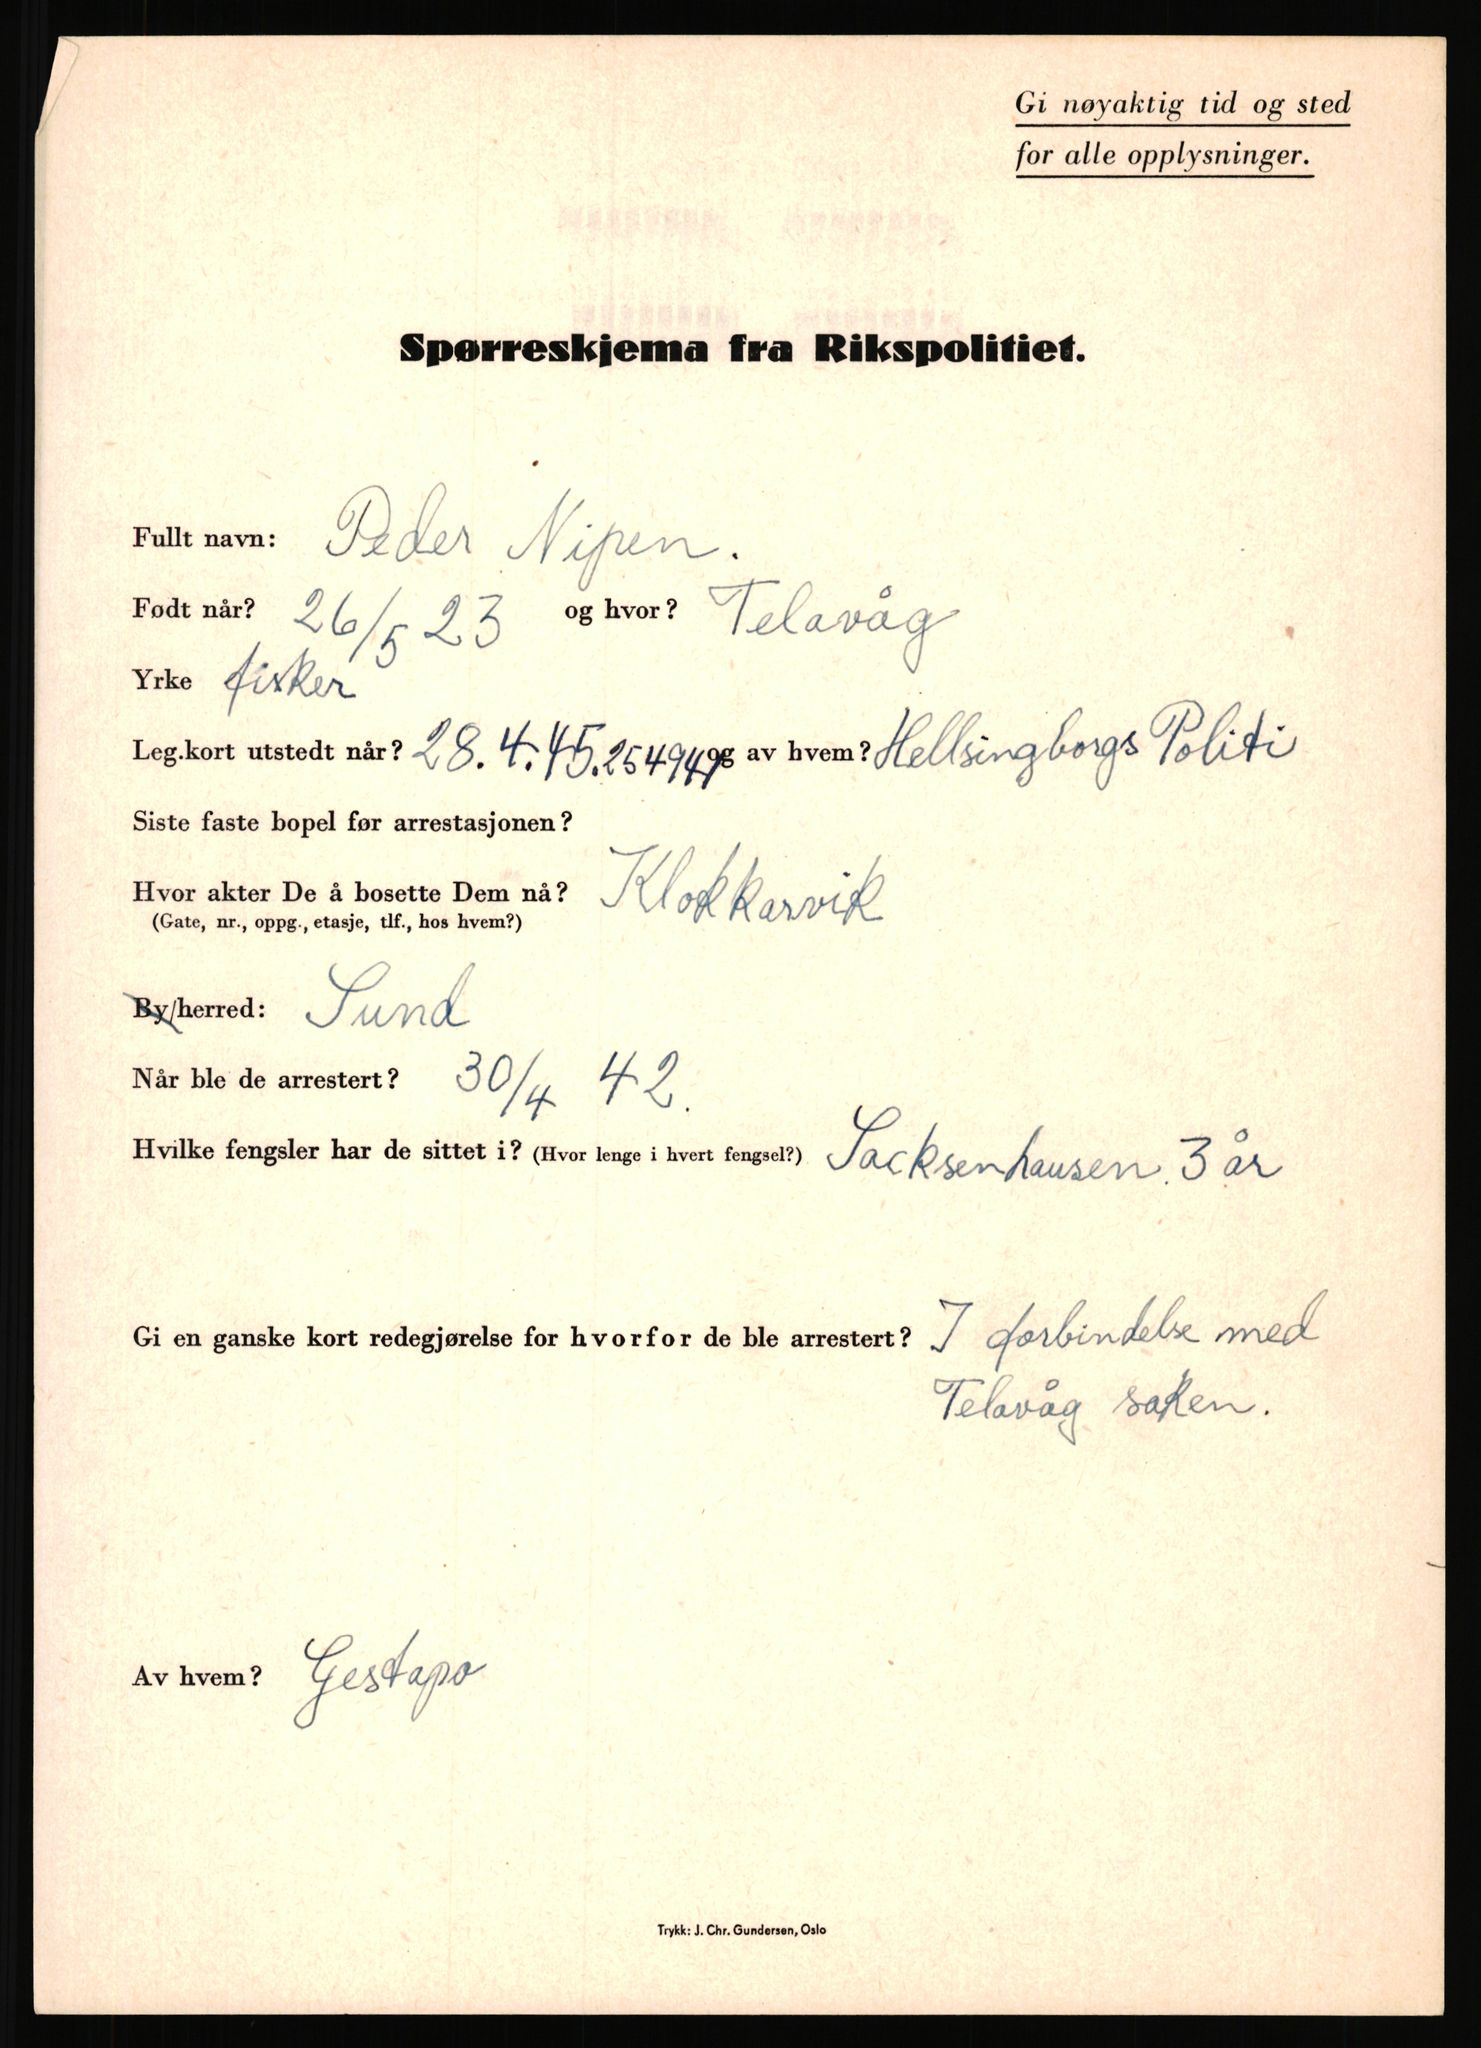 Gi nøyaktig tid og sted
for alle opplysninger.
Spørreskjema fra Rikspolitiet.
Fullt navn: Peder Nipen.
Født når? 26/5 23 og hvor? Telavåg
Yrke fisker
Leg.kort utstedt når? 28.4.45. 254941 og av hvem? Hellsingborgs Politi
Siste faste bopel før arrestasjonen?
Hvor akter De å bosette Dem nå? Klokkarvik
(Gate, nr., oppg., etasje, tlf., hos hvem?)
By/herred: Sund
Når ble de arrestert? 30/4 42.
Hvilke fengsler har de sittet i? (Hvor lenge i hvert fengsel?) Sacksenhausen. 3 år
Gi en ganske kort redegjørelse for hvorfor de ble arrestert? I forbindelse med
Telavåg saken.
Av hvem? Gestapo
Trykk: J. Chr. Gundersen, Oslo